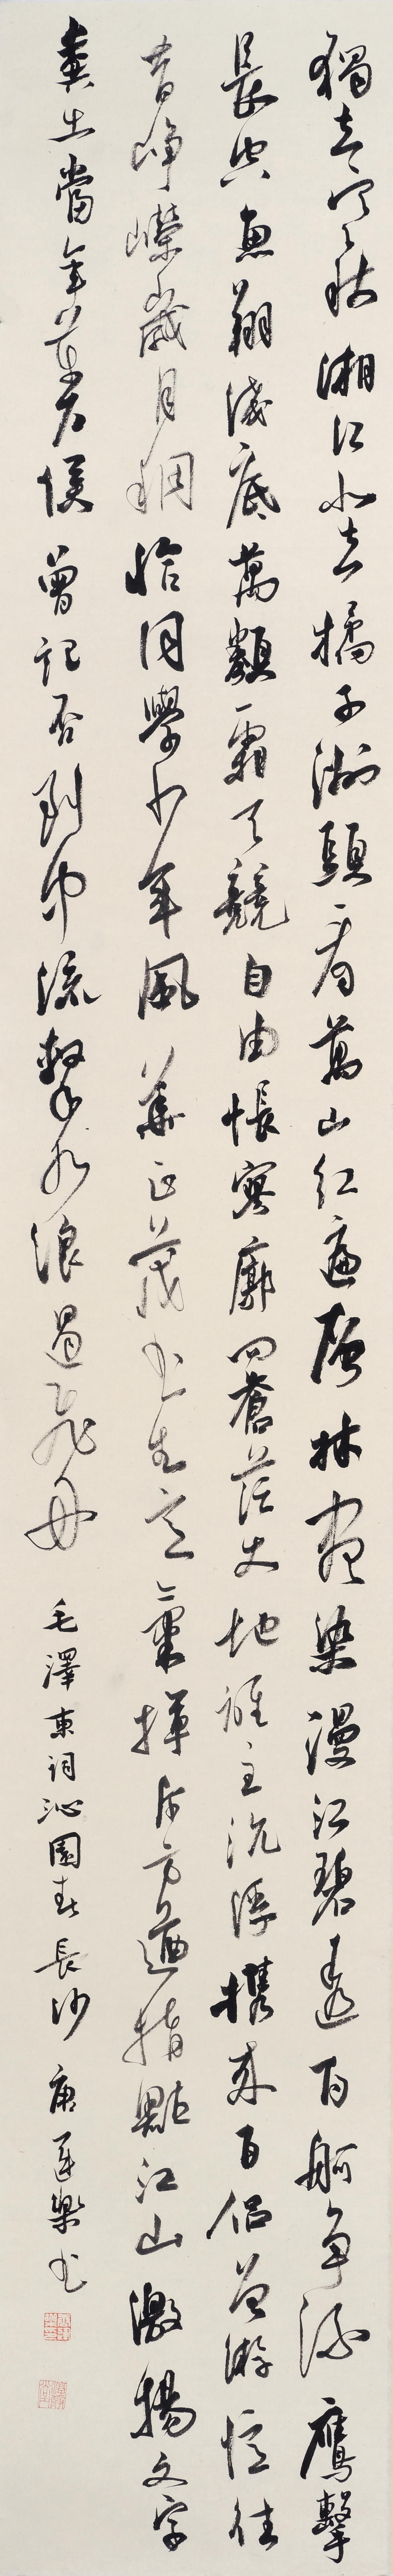 獨立寒秋湘江北去橘子洲頭看萬山紅遍層林盡染漫江碧透百舸爭流鷹擊
長空魚翔淺底萬類霜天競自由悵寥廓問蒼茫大地誰主沉浮攜來百侣曾游憶往
昔崢嶸歲月稠恰同學少年風華正茂书生意氣揮斥方遒指點江山激揚文字
糞土當年萬户侯曾記否到中流擊水浪遏飛舟 毛澤東詞沁園春長沙 唐樂书